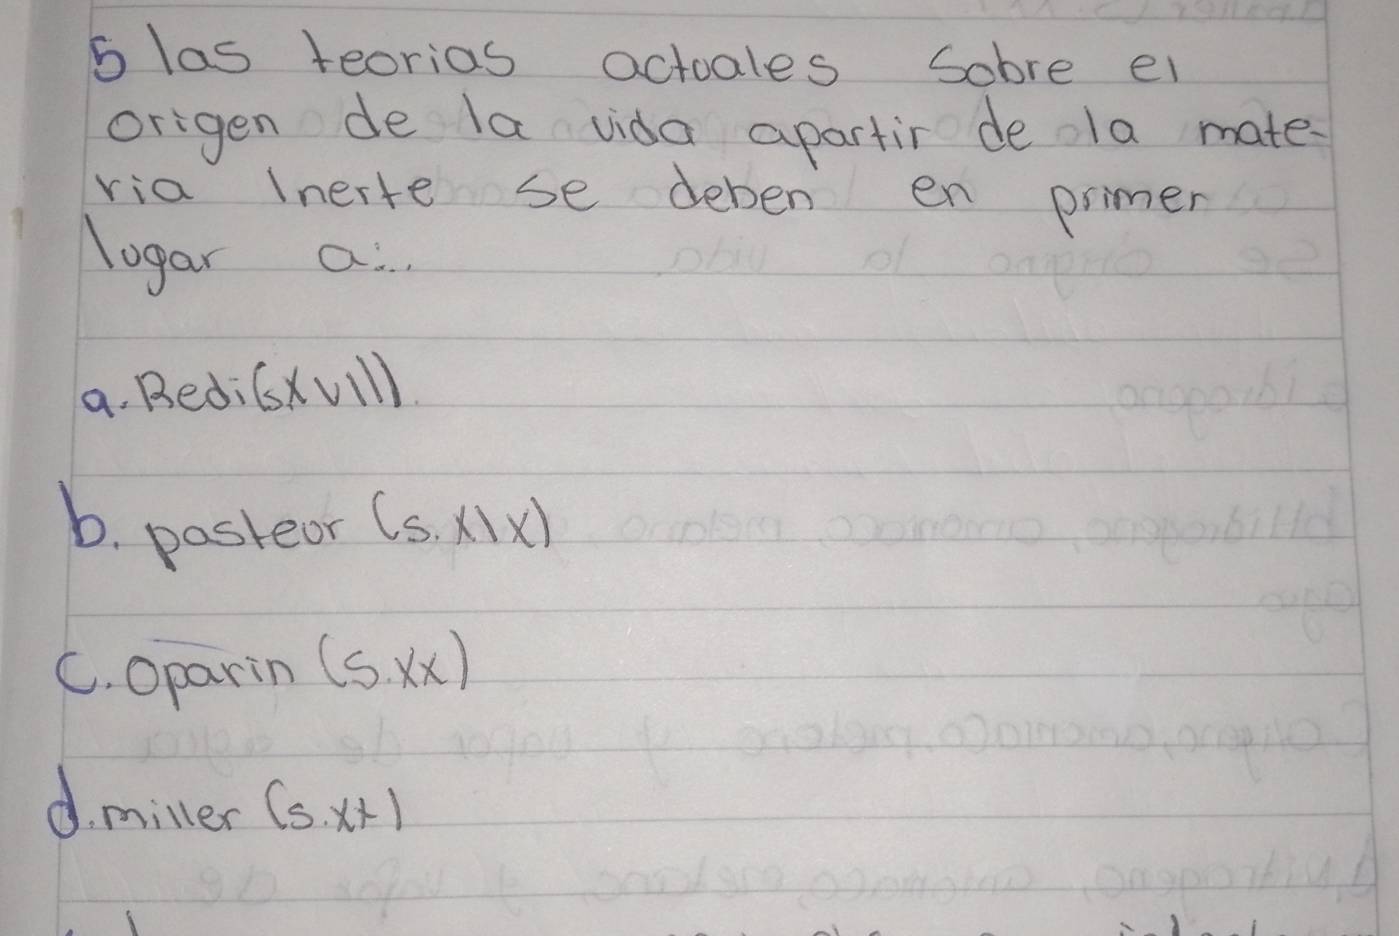 5 las teorias actuales sobre el
origen de la vida apartir de la mate-
ria inerte se deben en primer
lugar a:..
a. Redi (s XVIII)
b. pasteur (s. XIX)
c. oparin (s. XX)
d. miller (s. XX)